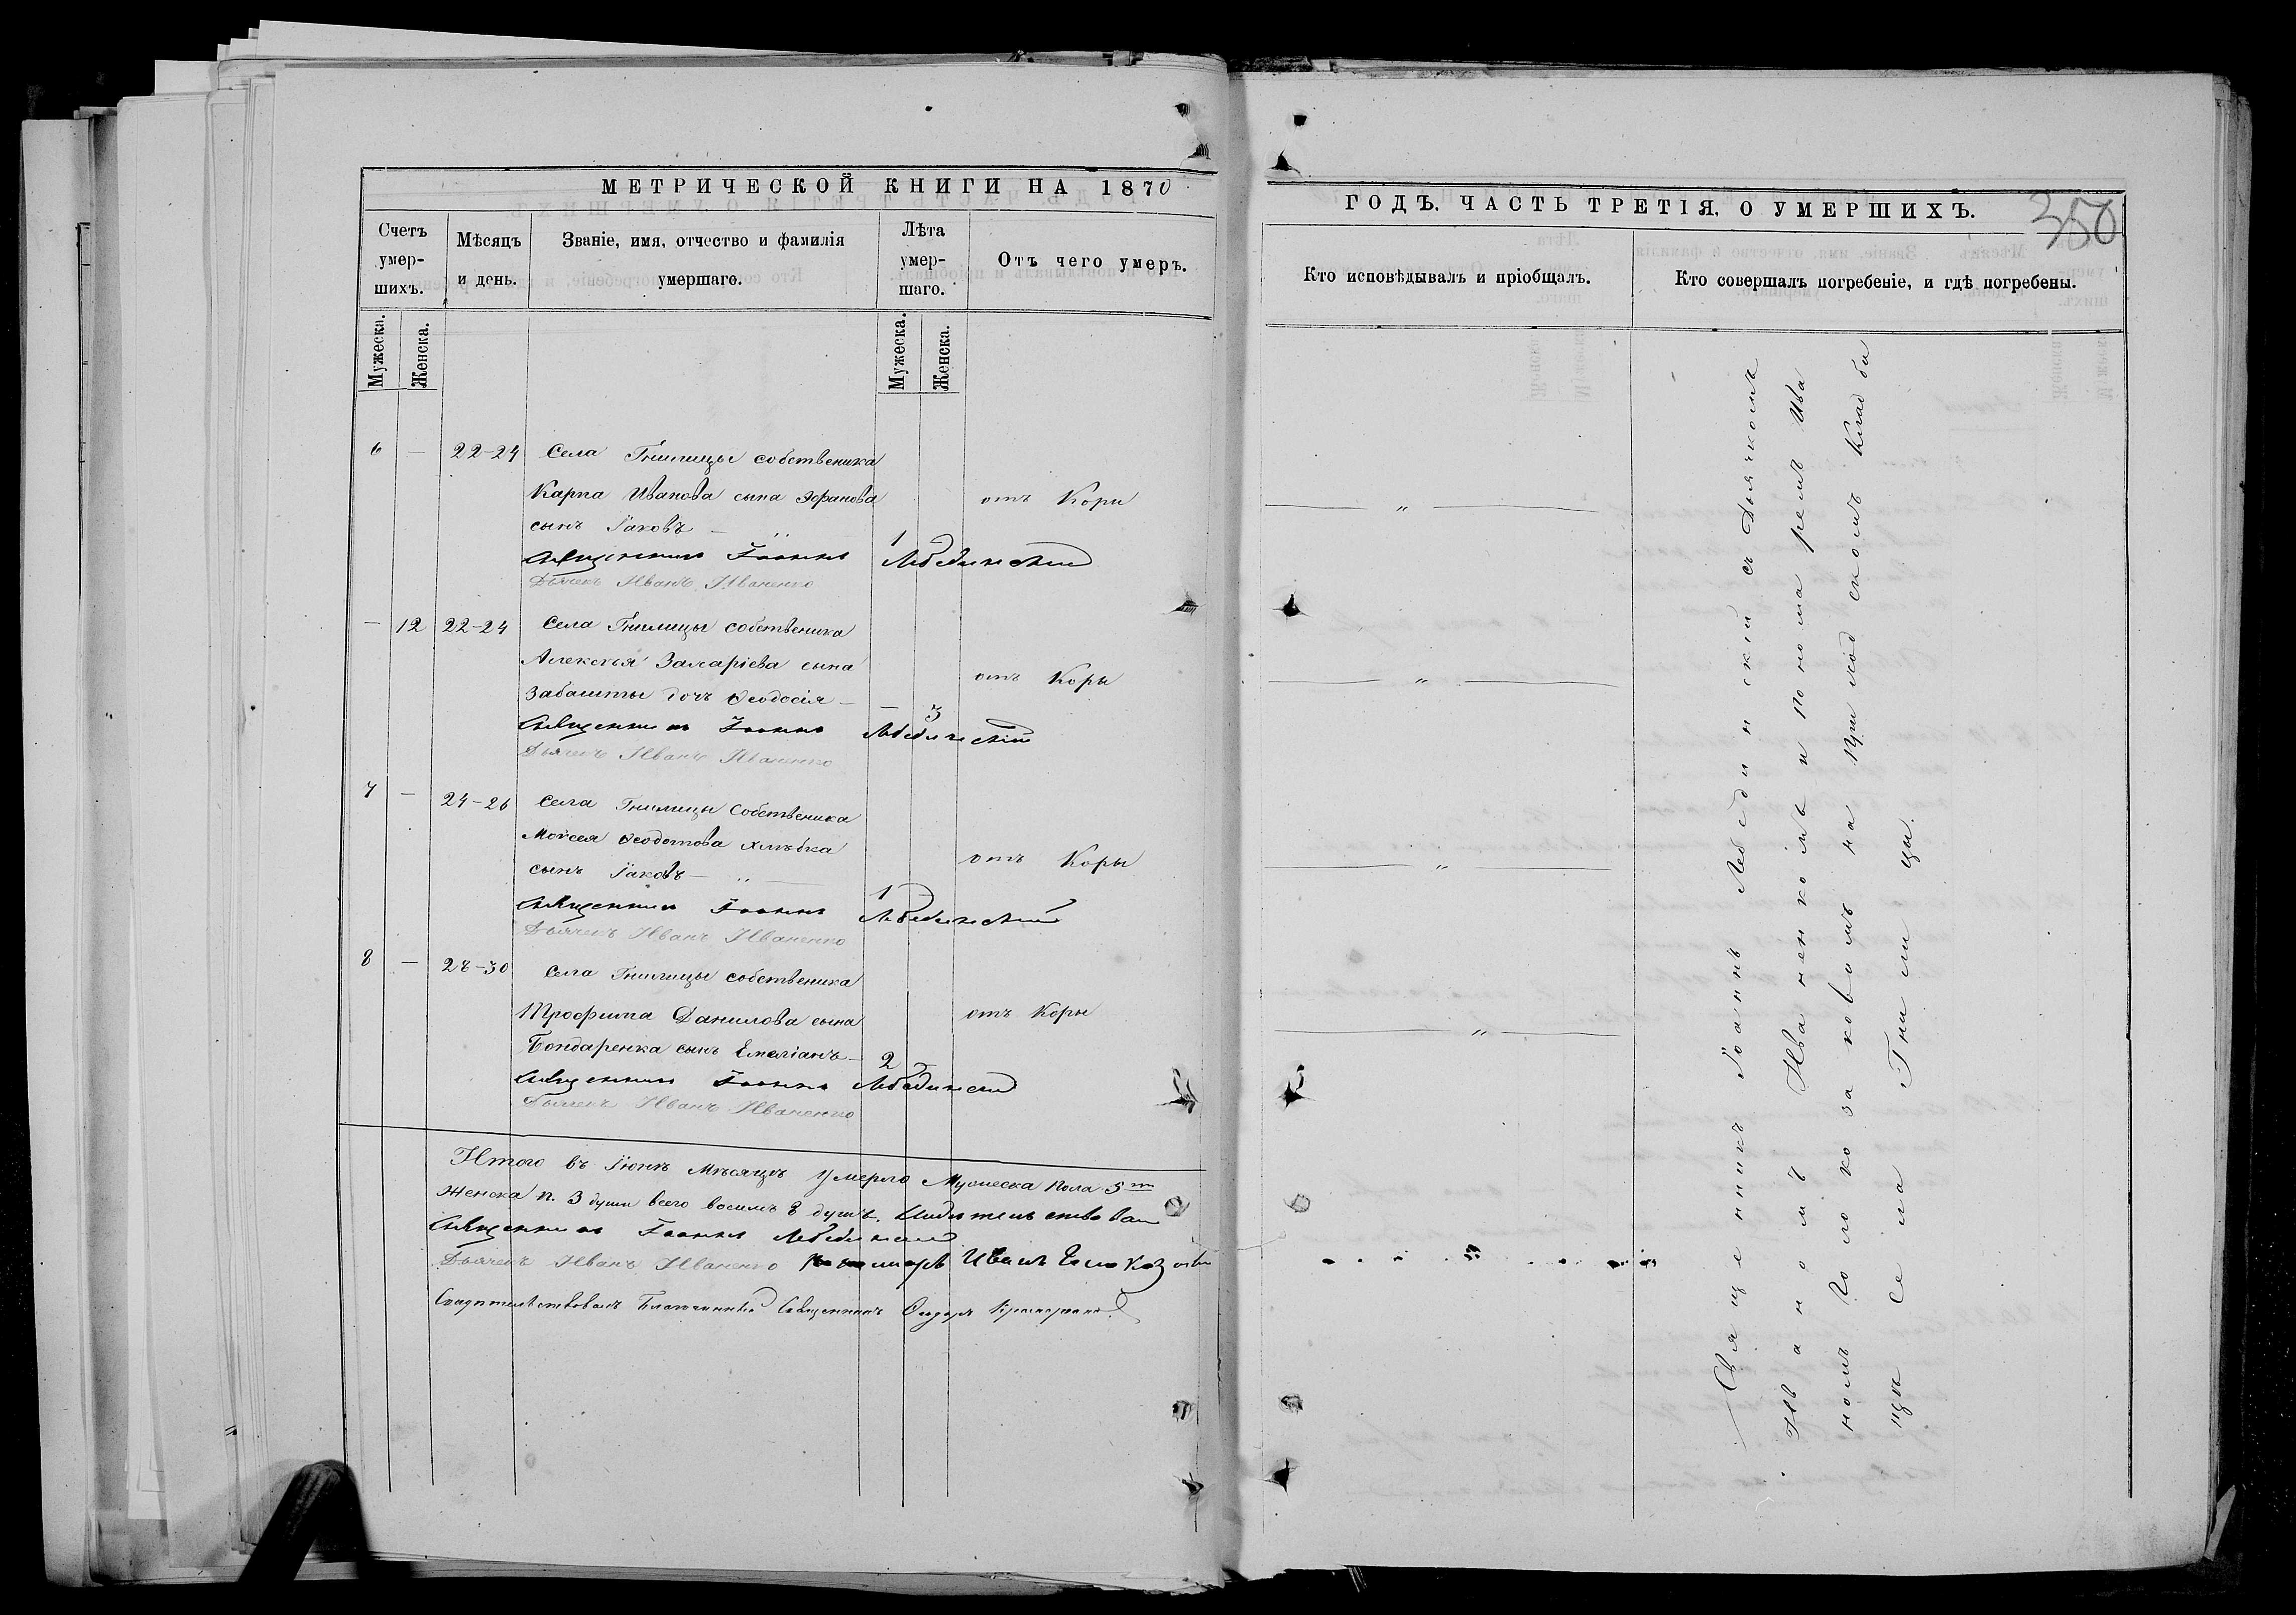 МЕТРИЧЕСКОЙ КНИГИ НА 1870
Счетъ умер-шихъ.
Мѣсяцъ и день.
Званіе, имя, отчество и фамилія умершаго.
Лѣта умер-шаго.
Отъ чего умеръ.
Мужеска. Женска.
Мужеска. Женска.
6 — 22-24 Села Гнилицы собственика
Карпа Иванова сына отъ Кори
сынъ Іаковъ — 1
Священникъ Іоаннъ Лебединскій
Дьячекъ Иванъ Иваненко
— 12 22-24 Села Гнилицы собственика
Алексѣя Захаріева сына отъ Коры
Забашты дочь Ѳеодосія — — 3
Священникъ Іоаннъ Лебединскій
Дьячекъ Иванъ Иваненко
7 — 24-26 Села Гнилицы Собственика
Моѵсея Ѳеодотова отъ Коры
сынъ Іаковъ — „ — 1
Священникъ Іоаннъ Лебединскій
Дьячекъ Иванъ Иваненко
8 — 28-30 Села Гнилицы собственика
Трофима Данилова сына отъ Коры
Бондаренка сынъ Емеліанъ — 2
Священникъ Іоаннъ Лебединскій
Дьячекъ Иванъ Иваненко
Итого въ Іюнѣ Мѣсяцѣ Умерло Мужеска пола 5
Женска п. 3 души всего восемь 8 душъ.
Священникъ Іоаннъ Лебединскій
Дьячекъ Иванъ Иваненко Иванъ
Свидѣтельствовалъ Благочинный Священникъ
ГОДЪ. ЧАСТЬ ТРЕТІЯ, О УМЕРШИХЪ.
350
Кто исповѣдывалъ и пріобщалъ.
Кто совершалъ погребеніе, и гдѣ погребены.
— „ —
— „ —
— „ —
— „ —
Священникъ Іоаннъ Лебединскій съ Дьячкомъ
Иваномъ Иваненкомъ и Пономаремъ Ива
номъ на приходскомъ кладби
щѣ села Гнилицы.